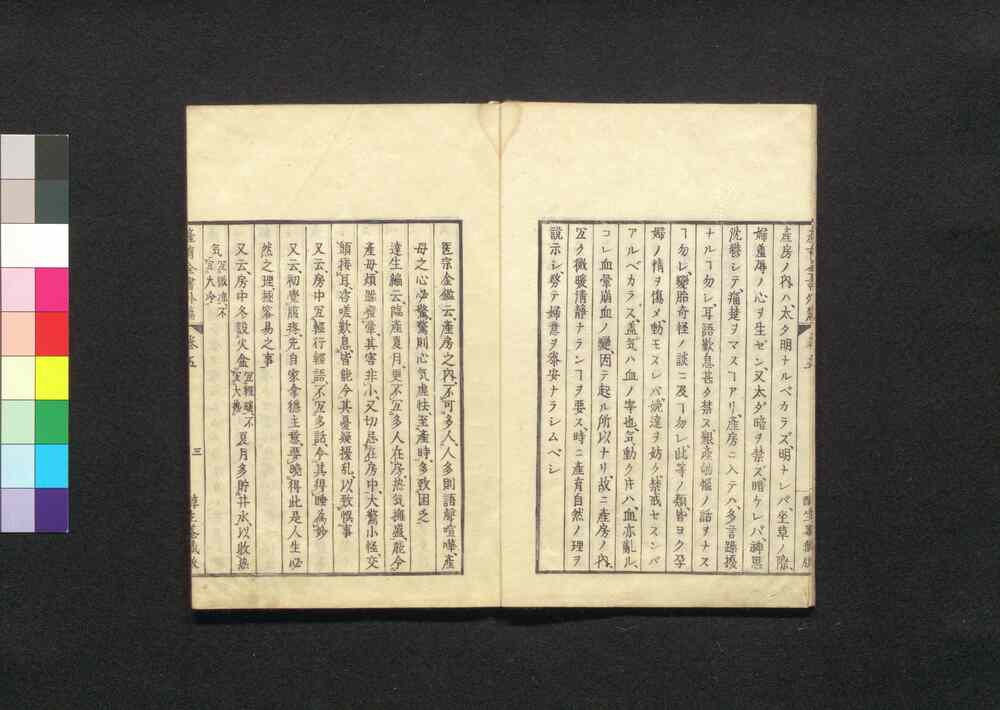 産房ノ內ハ、太タ明ナルベカラズ、明ナレバ坐草ノ際、
婦羞辱ノ心ヲ生ゼン、又太ダ暗ヲ禁ズ、暗ケレバ、神思
沈鬱シテ、痛楚ヲマスヿアリ、産房ニ入テハ多言躁擾
ナルヿ勿レ、耳語歎息甚タ禁ス、難産
ノ話ヲナス
ヿ勿レ、變胎奇怪ノ談ニ及ヿ勿レ、此等ノ類、皆ヨク孕
婦ノ情ヲ傷メ、動モスレバ娩達ヲ妨ク、禁戒セズンバ
アルベカラズ、盖気ハ血ノ宰也、気動ク片ハ、血亦亂ル、
コレ血暈崩血ノ變、因テ起ル所以ナリ、故ニ産房ノ內、
宜ク微暖清靜ナランヿヲ要ス、時ニ産育自然ノ理ヲ
說示シ、務テ婦意ヲ寧安ナラシムベシ
医宗金鑑云、産房之內、不可多人、人多則語聲喧嘩、産
母之心必驚、驚則心気虚怯、至産時、多致困乏
達生編云、臨産夏月、更不宜多人在房、熱気擁盛、能令
産母煩躁
暈、其害非小、又切忌在房中、大驚小怪、交
頭接耳、咨嗟歎息、皆能令其憂疑擾乱、以致悞事
又云、房中宜輕行輕語、不宜多話、令其得睡為妙
又云、初覺腹疼、先自家拿穩主意、要曉得此是人生必
然之理、極容易之事
又云、房中冬設火盆宜輕暖、不宜大熱夏月多貯井水、以收熱
気宜微凉、不宜大冷
巻五
三